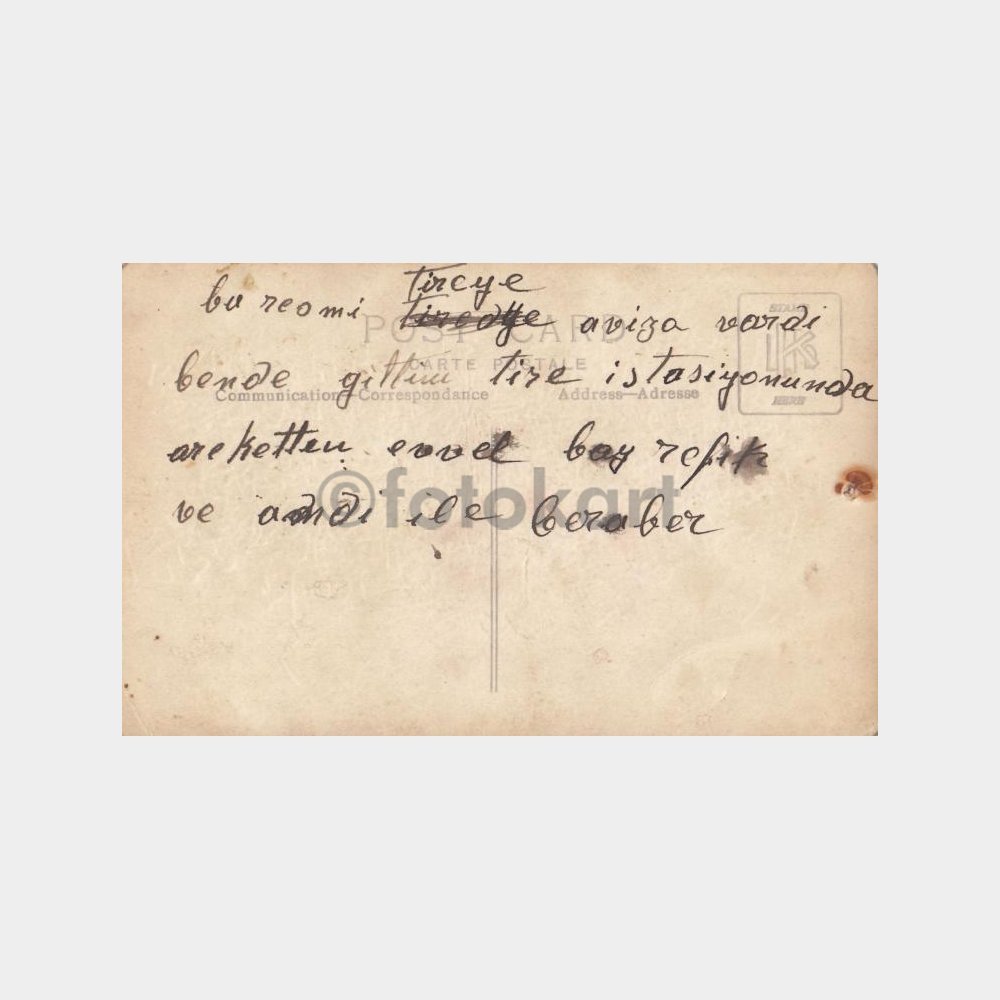 tireye
bu resmi tiredye aviza vardi
POST CARD
STAMP
K
HERE
CARTE POSTALE
bende gittim tire istasiyonunda
Communication—Correspondance
Address—Adresse
areketten evvel bay refik
©fotokart
ve andi ile beraber